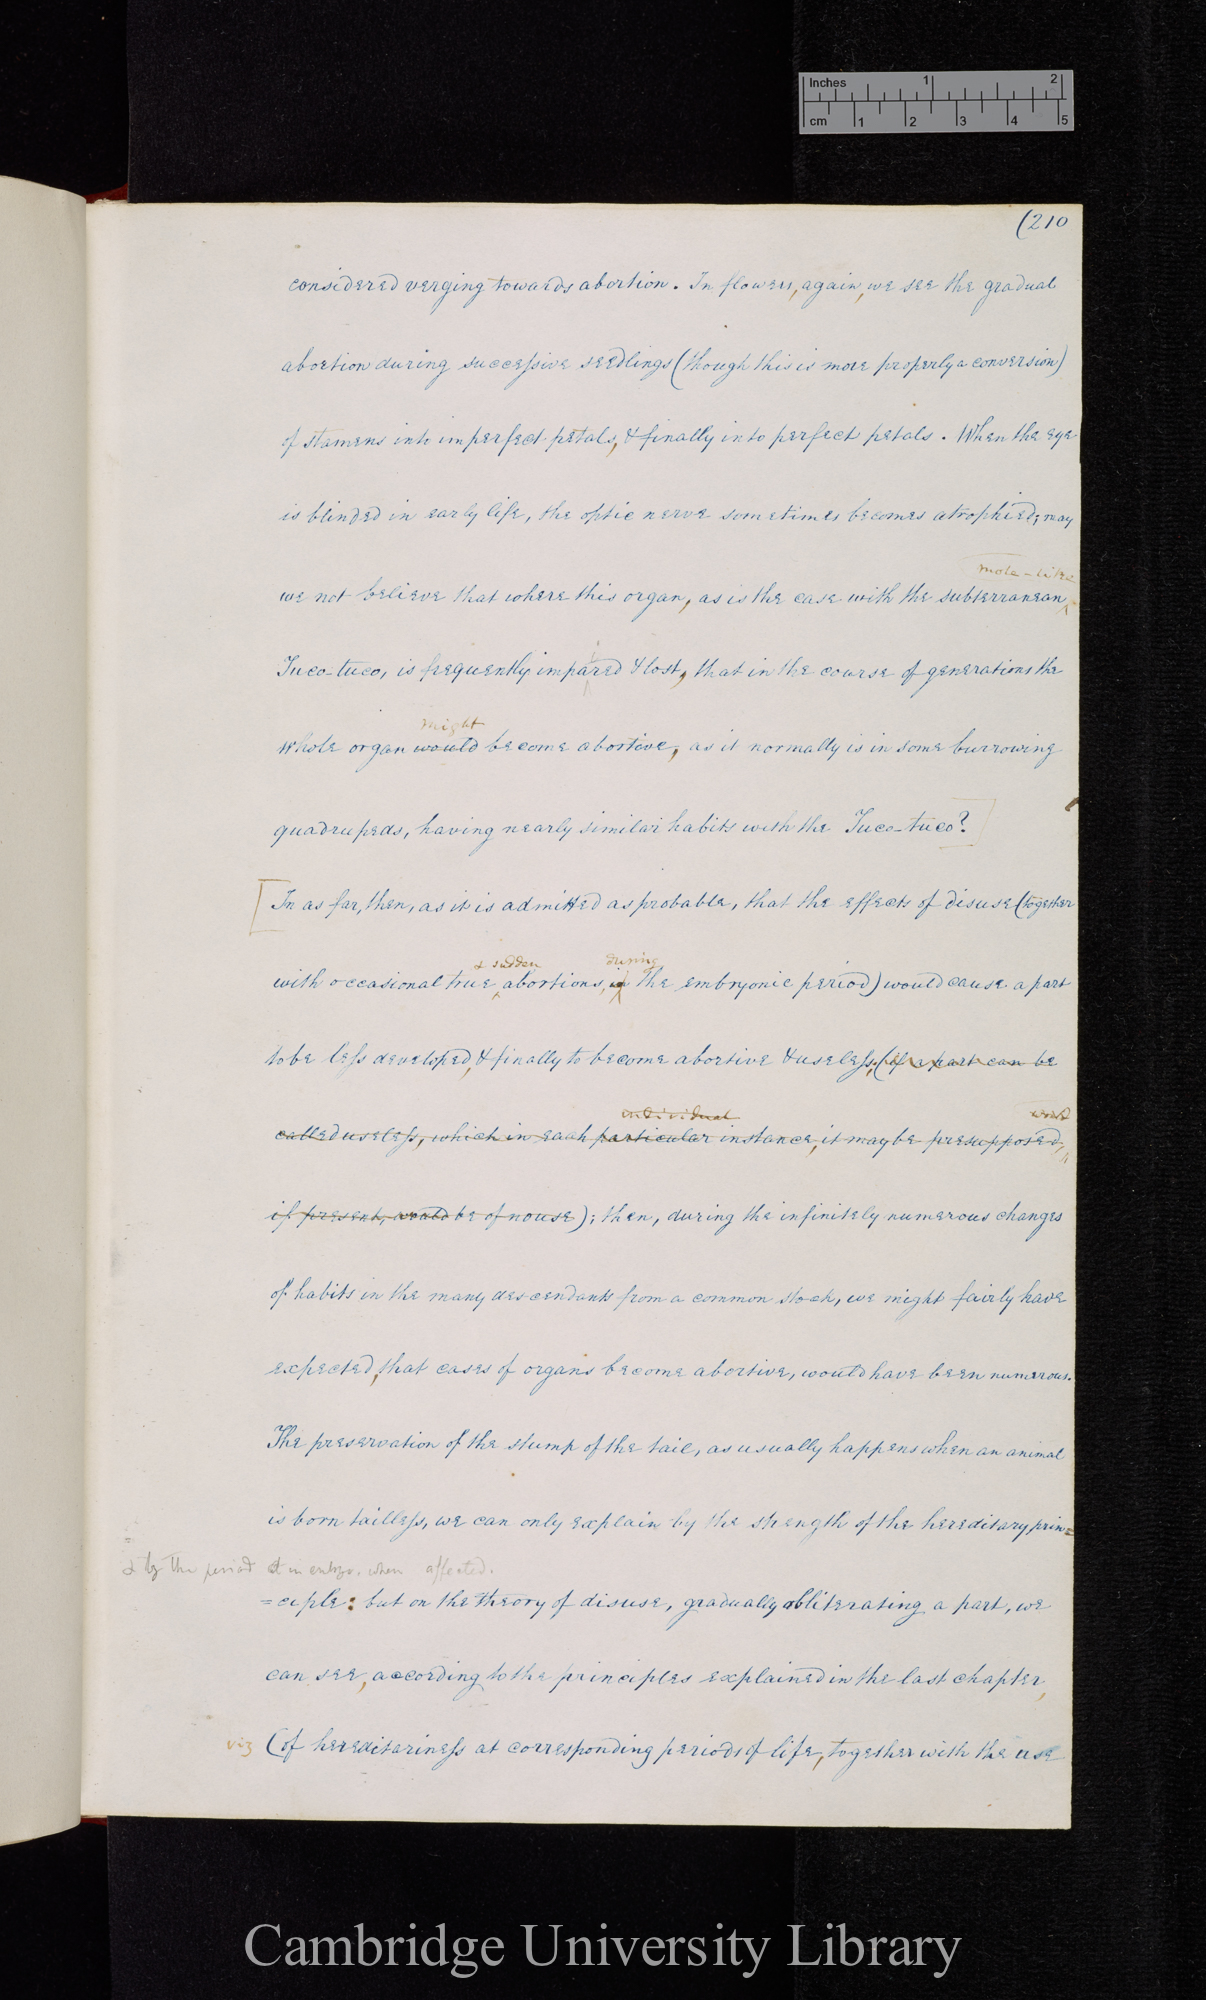 Inches 1 2
cm 1 2 3 4 5
(210
considered verging towards abortion. In flowers, again, we see the gradual
abortion during successive seedlings (though this is more properly a conversion)
of stamens into imperfect petals, & finally into perfect petals. When the eye
is blinded in early life, the optic nerve sometimes becomes atrophied; may
mole-like
we not believe that where this organ, as is the case with the subterranean
Tuco-tuco, is frequently impared & lost, that in the course of generations the
might
whole organ would become abortive, as it normally is in some burrowing
quadrupeds, having nearly similar habits with the Tuco-tuco?]
[In as far, then, as it is admitted as probable, that the effects of disuse (together
& sudden during
with occasional true abortions, in the embryonic period) would cause a part
to be less developed, & finally to become abortive & useless; (if a part can be
individual
called useless, which in each particular instance, it may be presupposed,
if present, would be of no use); then, during the infinitely numerous changes
of habits in the many descendants from a common stock, we might fairly have
expected, that cases of organs become abortive, would have been numerous.
The preservation of the stump of the tail, as usually happens when an animal
is born tailless, we can only explain by the strength of the hereditary prin=
& by the period in embryo, when affected.
=ciple: but on the theory of disuse, gradually obliterating a part, we
can see, according to the principles explained in the last chapter,
viz (of hereditariness at corresponding periods of life, together with the use
Cambridge University Library